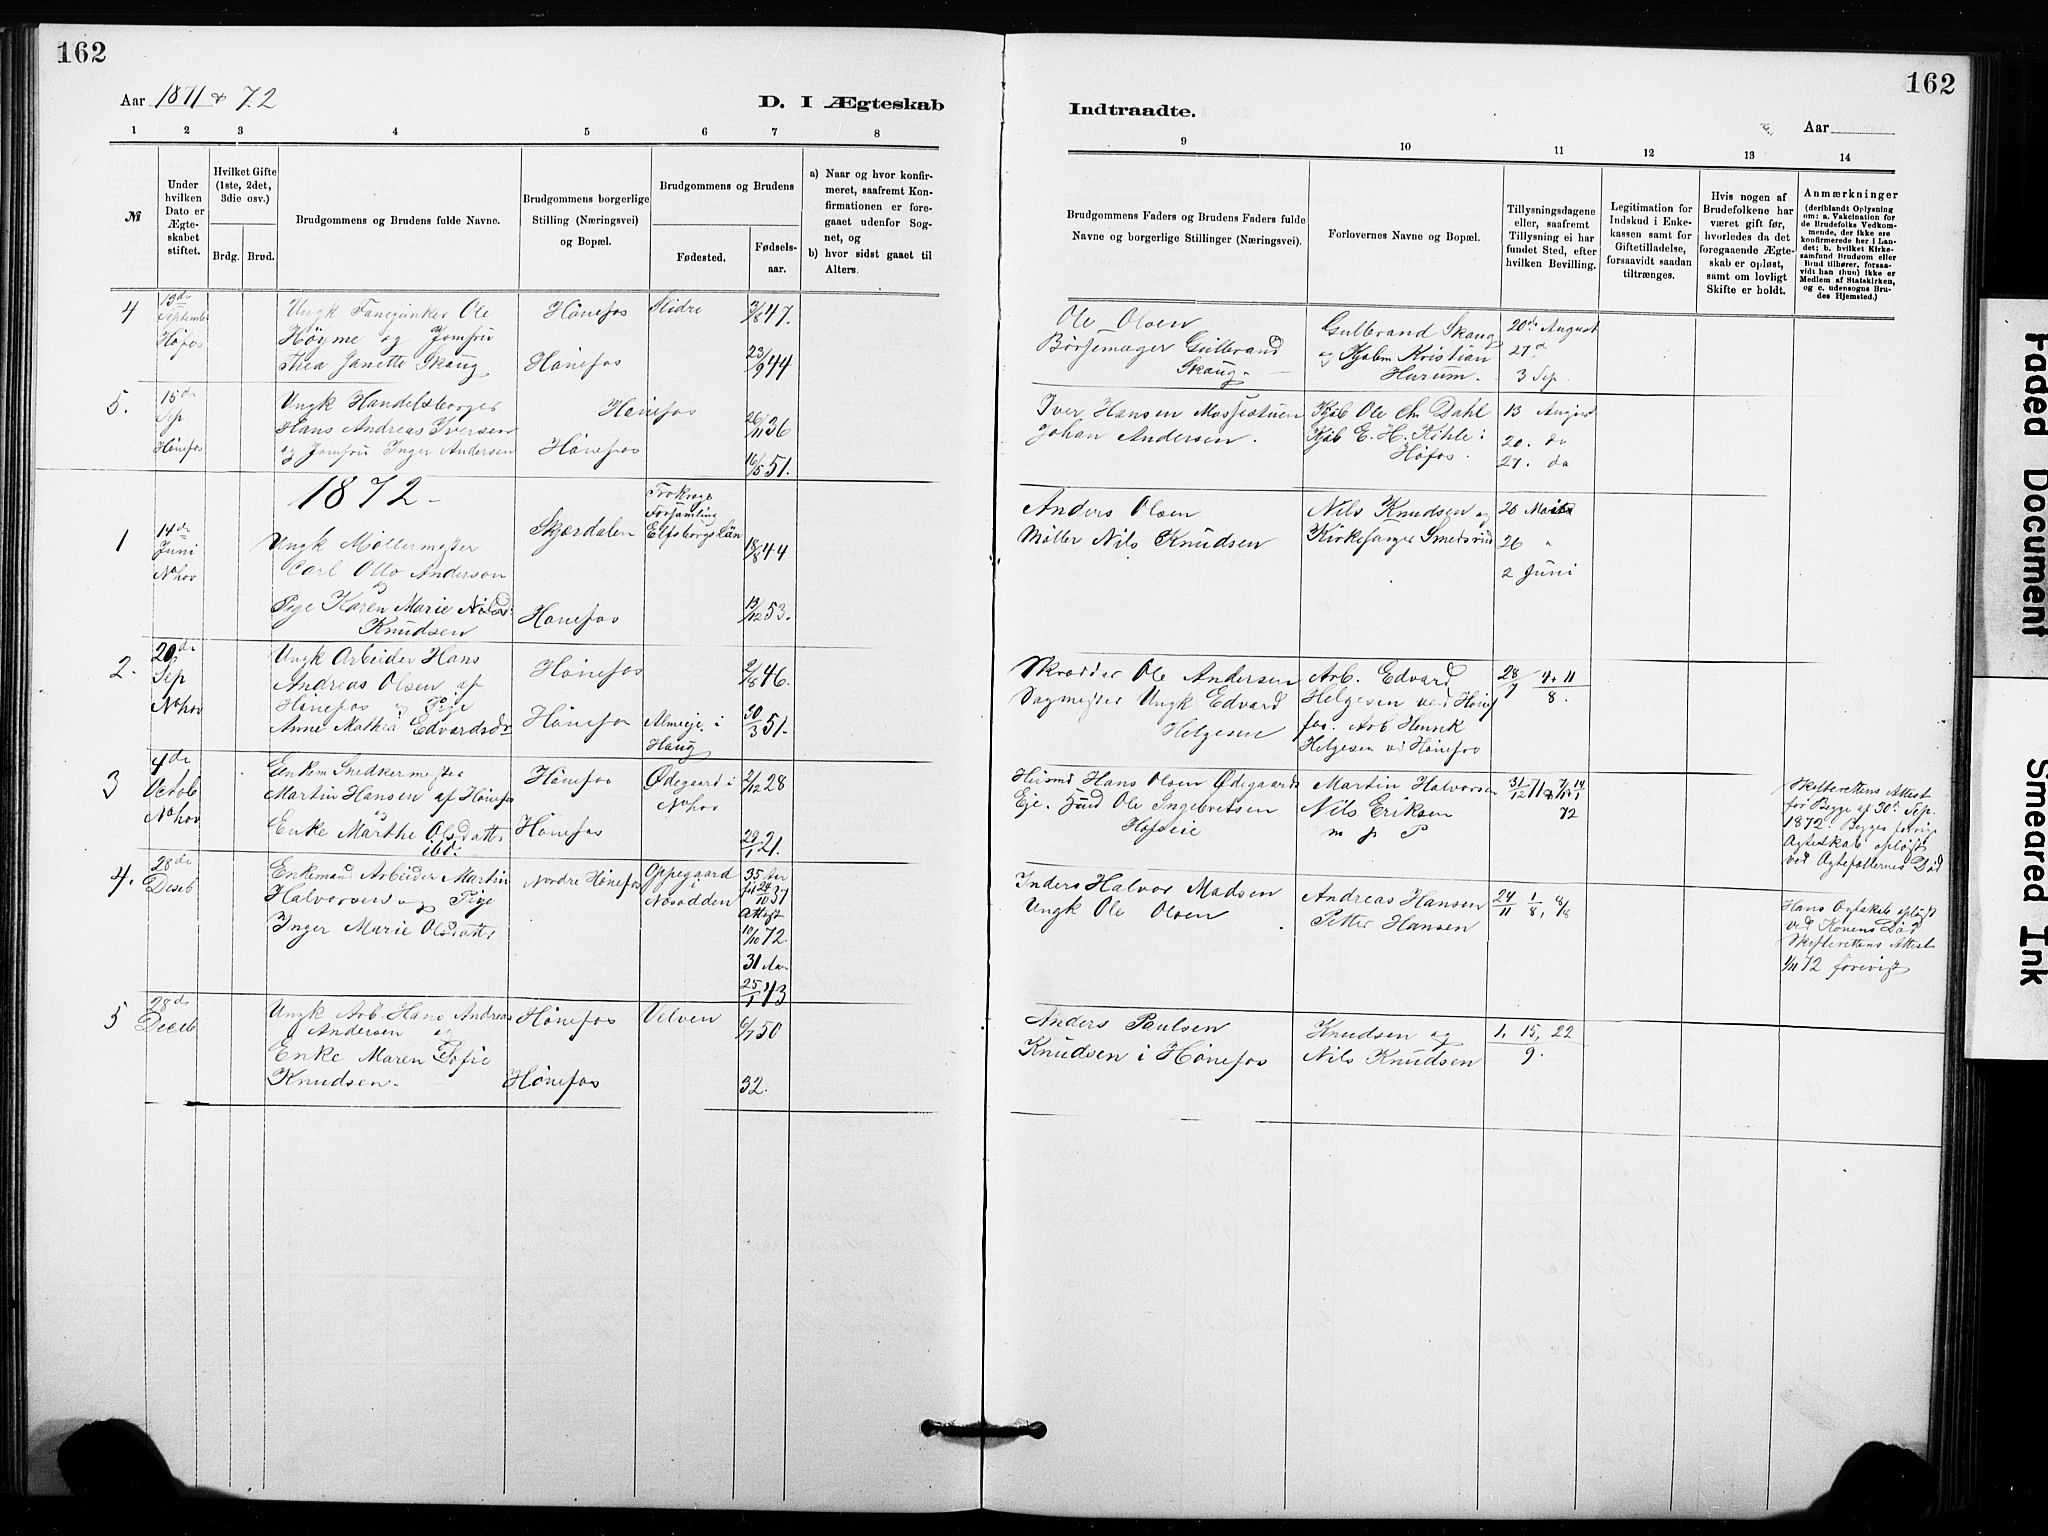 162
162
Aar 1871 & 72
D. I Ægteskab
Indtraadte.
Aar
1 2 3 4 5 6 7 8
9 10 11 12 13 14
№
Under hvilken Dato er Ægteskabet stiftet.
Hvilket Gifte (1ste, 2det, 3die osv.)
Brdg. Brud.
Brudgommens og Brudens fulde Navne.
Brudgommens borgerlige Stilling (Næringsvei) og Bopæl.
Brudgommens og Brudens
Fødested.
Fødsels-aar.
a) Naar og hvor konfirmeret, saafremt Konfirmationen er foregaaet udenfor Sognet, og
b) hvor sidst gaaet til Alters.
Brudgommens Faders og Brudens Faders fulde Navne og borgerlige Stillinger (Næringsvei).
Forlovernes Navne og Bopæl.
Tillysningsdagene eller, saafremt Tillysning ei har fundet Sted, efter hvilken Bevilling.
Legitimation for Indskud i Enkekassen samt for Giftetilladelse, forsaavidt saadan tiltrænges.
Hvis nogen af Brudefolkene har været gift før, hvorledes da det foregaaende Ægteskab er opløst, samt om lovligt Skifte er holdt.
Anmærkninger
(deriblandt Oplysning om: a. Vakcination for de Brudefolks Vedkommende, der ikke ere konfirmerede her i Landet; b. hvilket Kirkesamfund Brudgom eller Brud tilhører, forsaavidt han (hun) ikke er Medlem af Statskirken, og c. udensogns Brudes Hjemsted.)
4
13de September
Høfos
Ungk Fanejunker Ole
Høyme og Jomfru
Thea Janette Skaug
Hønefos
Hønefos
Slidre
3/8 47.
23/9 44
Ole Olsen
Børsemager Gulbrand
Skaug
Gulbrand Skaug
og Hjalm Kristian
Hurum.
20de August
27 d
3 Sep.
5.
15de
Sep
Hønefos
Ungk Handelsborger
Hans Andreas Iversen
og Jomfru Inger Andersen
Hønefos
Hønefos
26/11 36
16/5 51.
Iver Hansen Mossestuen
Johan Andersen.
Kjøb Ole Chr Dahl
Kjøb E. H. Kihle i
Høfos.
13 August
20. do
27. do
1872
1
14de
Juni
Nohov
Ungk Møllermester
Carl Otto Anderson
og
Pige Karen Marie Nilsd
Knudsen
Skjærdalen
Hønefos
Forsamling
Elfsborgs Län
18/8 44
13/12 53.
Anders Olsen
Møller Nils Knudsen
Nils Knudsen og
Kirkesanger Smedsrud
20 Mai
26 "
2 Juni
2.
20de
Sep
Nohov
Ungk Arbeider Hans
Andreas Olsen af
Hønefos og Pige
Anne Mathea Edvardsdr
Hønefos
Hønefos
Almeeje i
Haug
2/8 46.
30/3 51.
Skrædder Ole Andersen
Sagmester Ungk Edvard
Helgesen
Arb. Edvard
Helgesen ved Hønefos. Arb Henrik
Helgesen vd Hønefos
28/7 4+11/8.
3
4de
Octob
Nohov
Enkem Snedkermester
Martin Hansen af Hønefos
og
Enke Marthe Olsdatter
ibd.
Hønefos
Hønefos
Ødegaard i
Nohov
2/12 28
29/1 21.
Husmd Hans Olsen Ødegaards
Eje. Ole Ingebretsen
Hofseie
Martin Halvorsen
Nils Eriksen
31/12 71 & 7/1 14/1
72
Skifterettens Attest
for Begge af 30te Sep.
1872. Begges forrige
Ægteskab opløst
ved Ægtefællernes Død
4.
28de
Deseb
Enkemand Arbeider Martin
Halvorsen og Pige
Inger Marie Olsdatter
Nordre Hønefos
Oppegaard
i
Nesodden
35 Aar
Attest
10/10 72
31 Aar
25/1 43
Inders Halvor Madsen
Ungk Ole Olsen
Andreas Hansen
Petter Hansen
24/11 1/8, 8/8
Hans Ægteskab opløst
ved Konens Død
Skifterettens Attest
1/11 72 forevist
5
28de
Deceb
Ungk Arb. Hans Andreas
Andersen og
Enke Maren Sofie
Knudsen.
Hønefos
Hønefos
Velven
6/7 50
32.
Anders Paulsen
Knudsen i Hønefos
Knudsen og
Nils Knudsen
1, 15, 22
9.
Faded Document
Smeared Ink